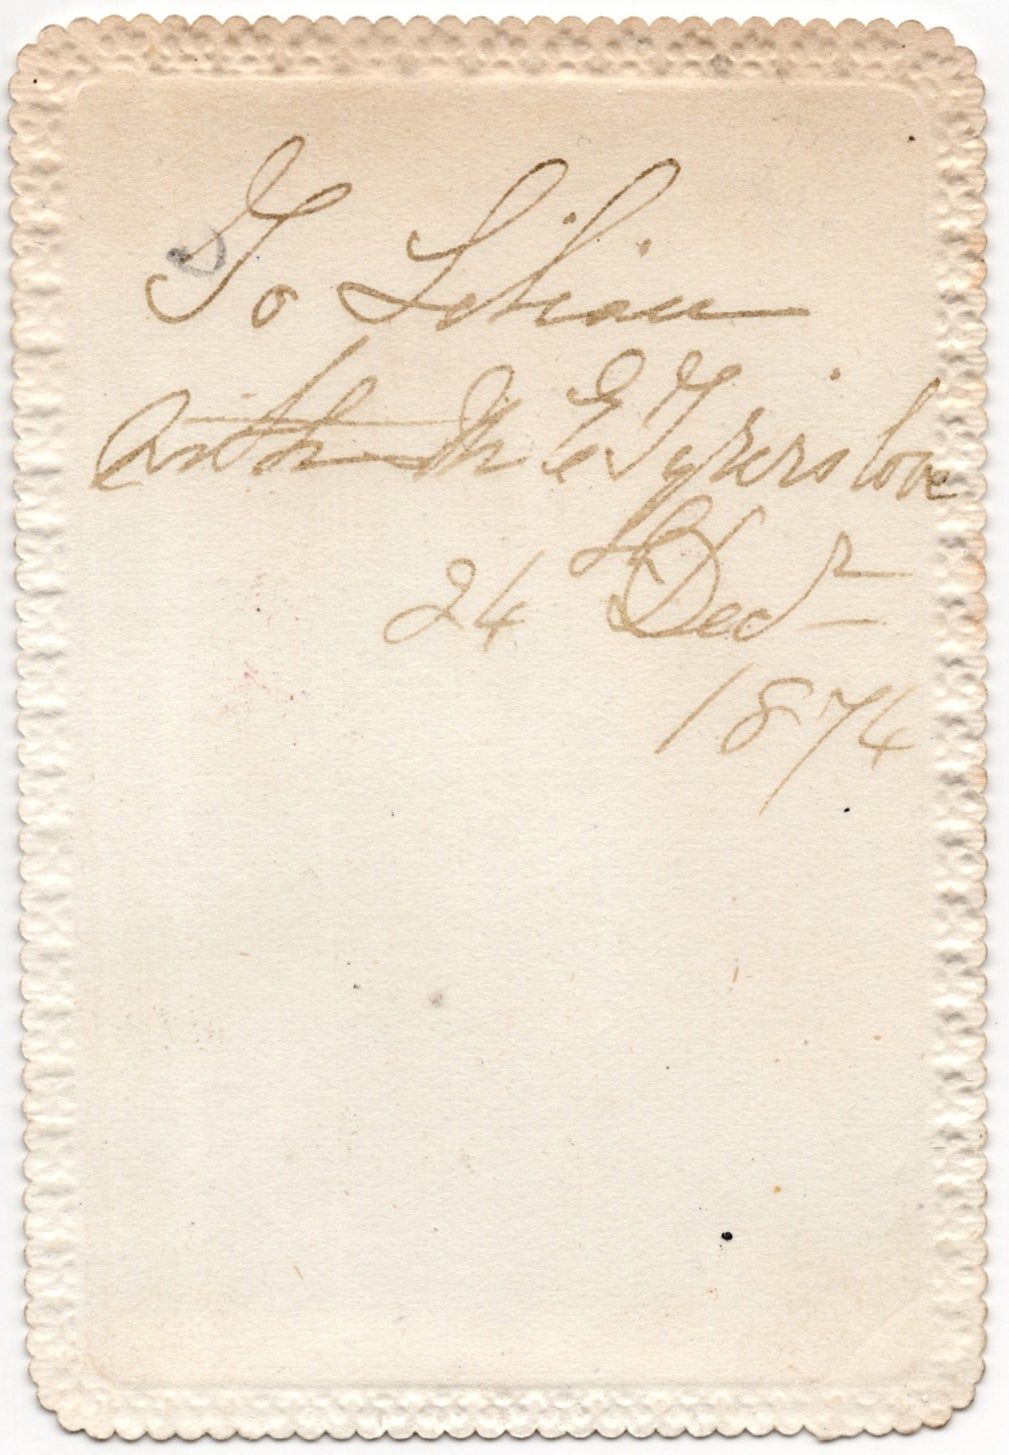 To Lilian
With M E Tyrer's love
24 Decr
1874